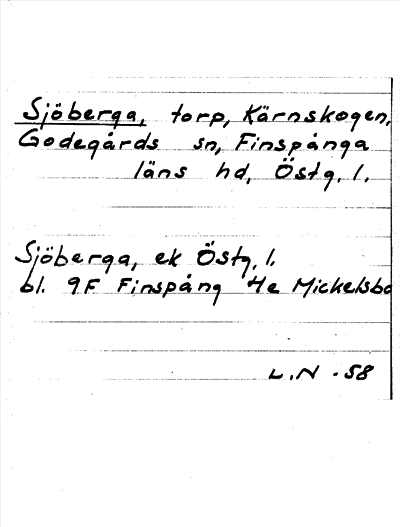 Sjöberga, torp, Kärnskogen,
Godegårds sn, Finspånga
läns hd, Östg. l.
Sjöberga, ek Östg. l.
bl. 9F Finspång 4e Mickelsbo
L.N - 58